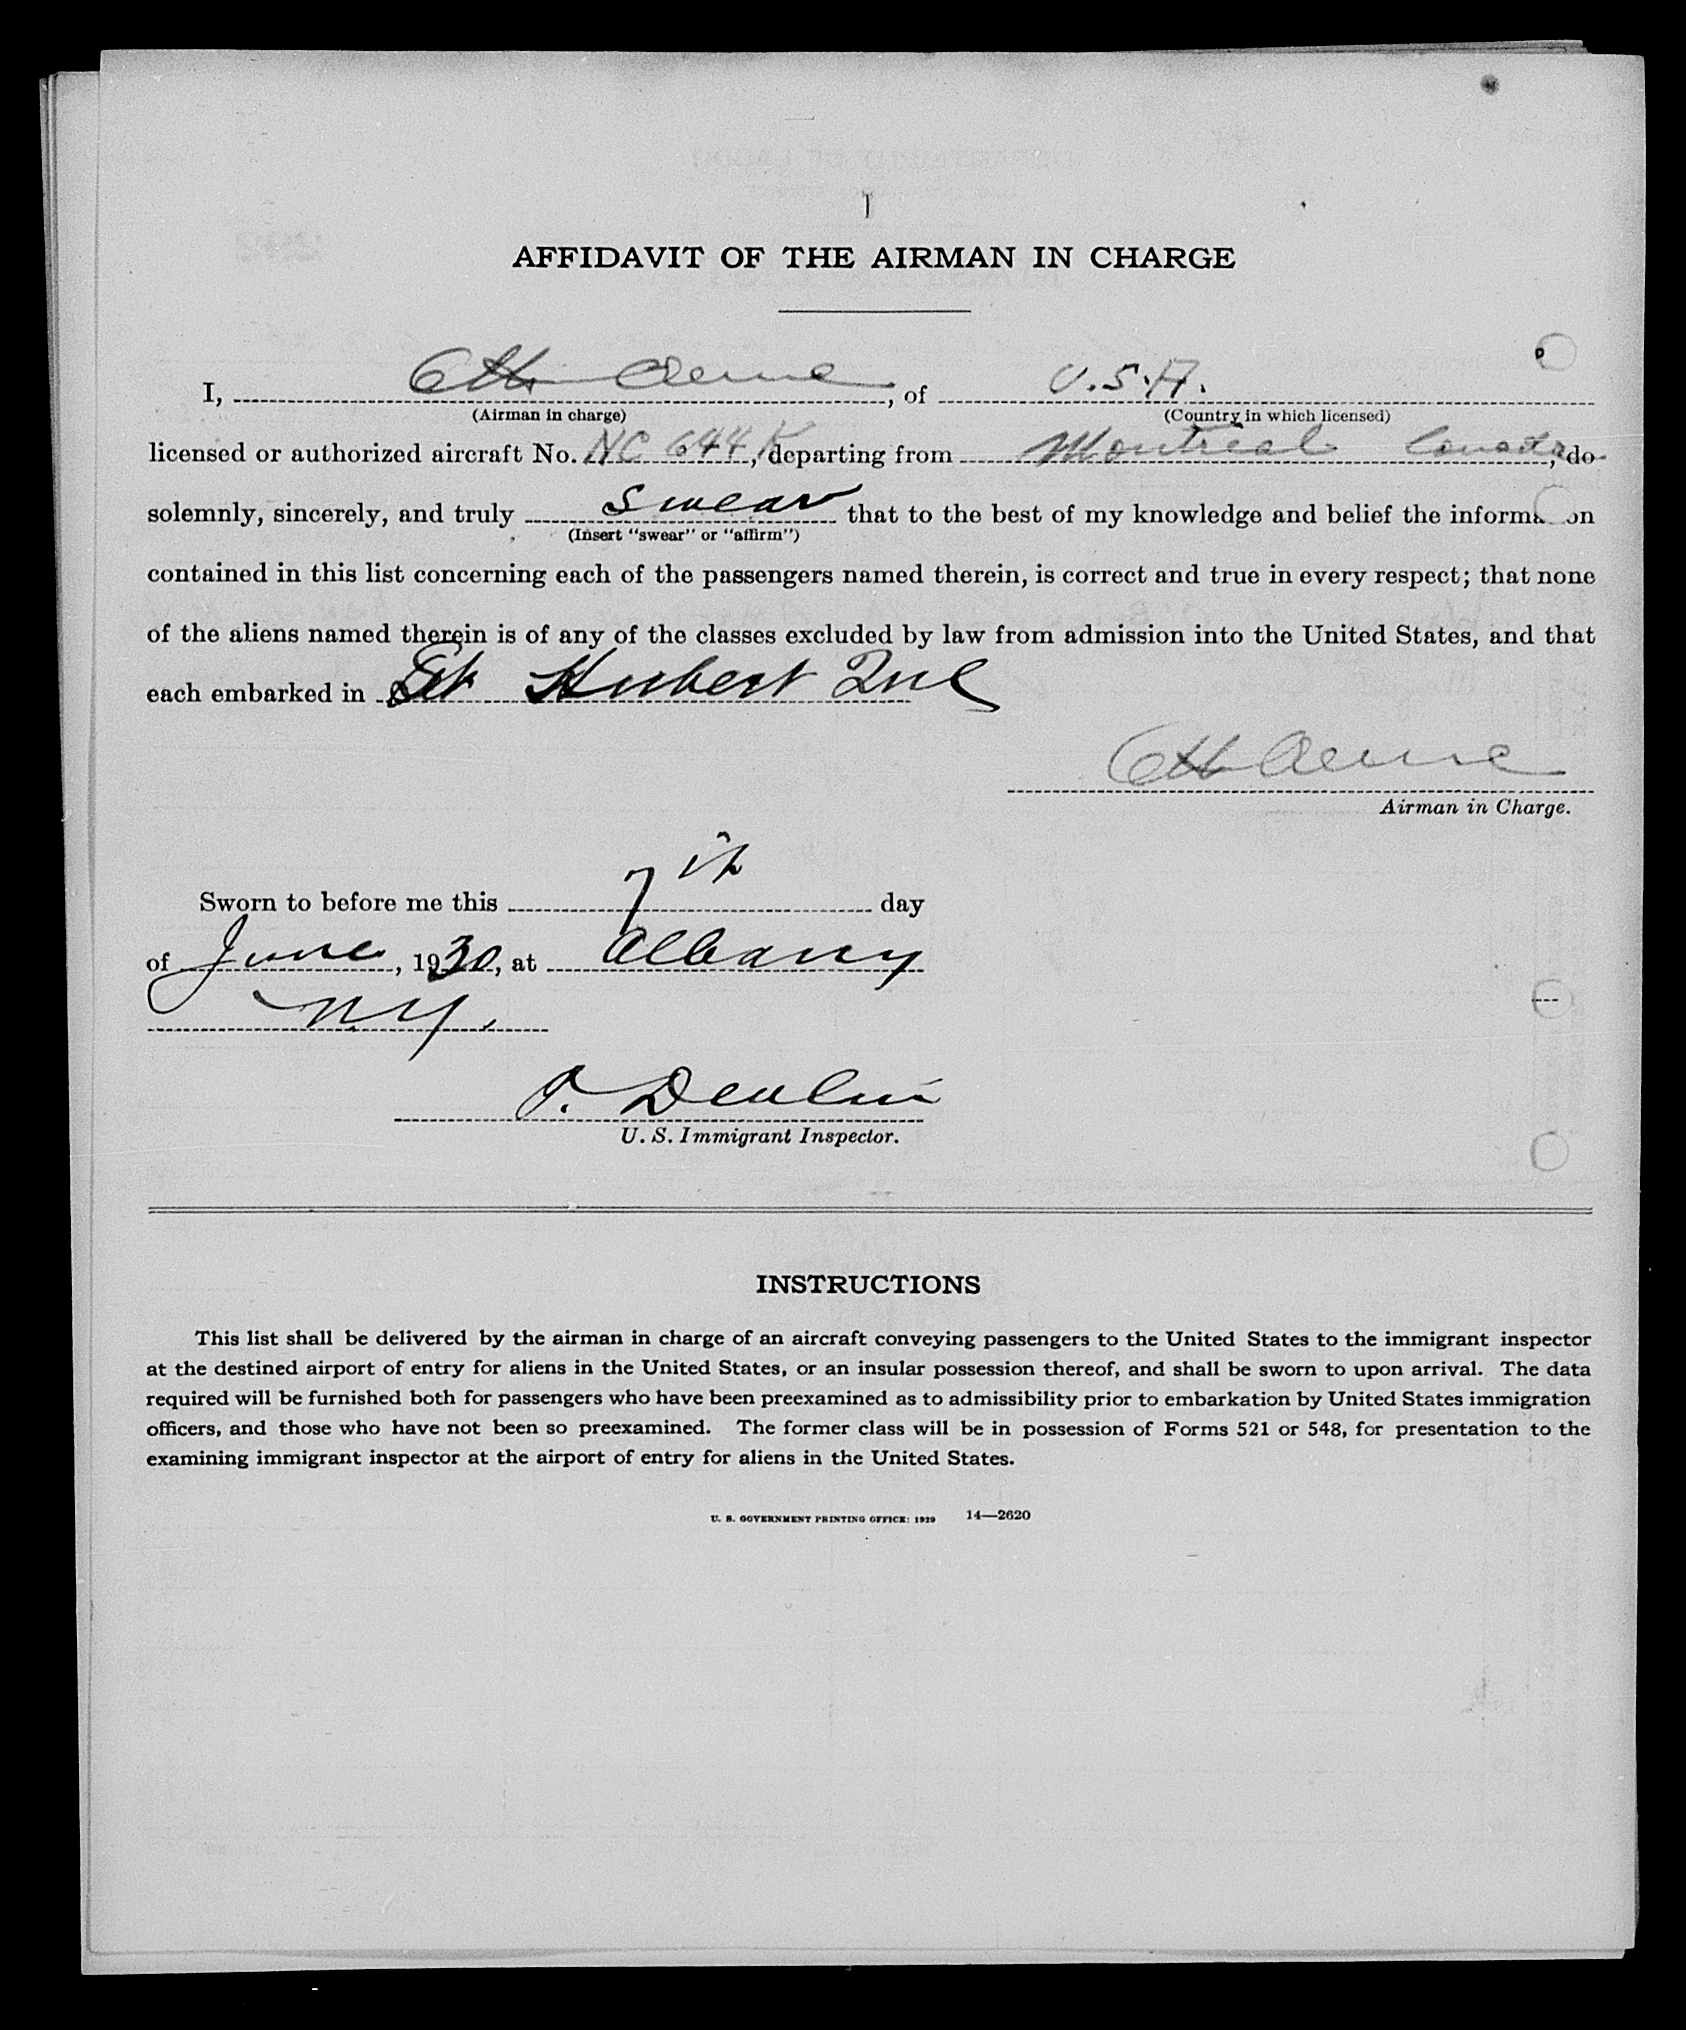 AFFIDAVIT OF THE AIRMAN IN CHARGE
I, , of U.S.A.
(Airman in charge) (Country in which licensed)
licensed or authorized aircraft No. NC 644K, departing from Montreal Canada, do
solemnly, sincerely, and truly swear that to the best of my knowledge and belief the information
(Insert "swear" or "affirm")
contained in this list concerning each of the passengers named therein, is correct and true in every respect; that none
of the aliens named therein is of any of the classes excluded by law from admission into the United States, and that
each embarked in St Hubert Que
Airman in Charge.
Sworn to before me this 7th day
of June, 1930, at Albany
N.Y.
Devlin
U. S. Immigrant Inspector.
INSTRUCTIONS
This list shall be delivered by the airman in charge of an aircraft conveying passengers to the United States to the immigrant inspector
at the destined airport of entry for aliens in the United States, or an insular possession thereof, and shall be sworn to upon arrival. The data
required will be furnished both for passengers who have been preexamined as to admissibility prior to embarkation by United States immigration
officers, and those who have not been so preexamined. The former class will be in possession of Forms 521 or 548, for presentation to the
examining immigrant inspector at the airport of entry for aliens in the United States.
U. S. GOVERNMENT PRINTING OFFICE: 1929 14—2620